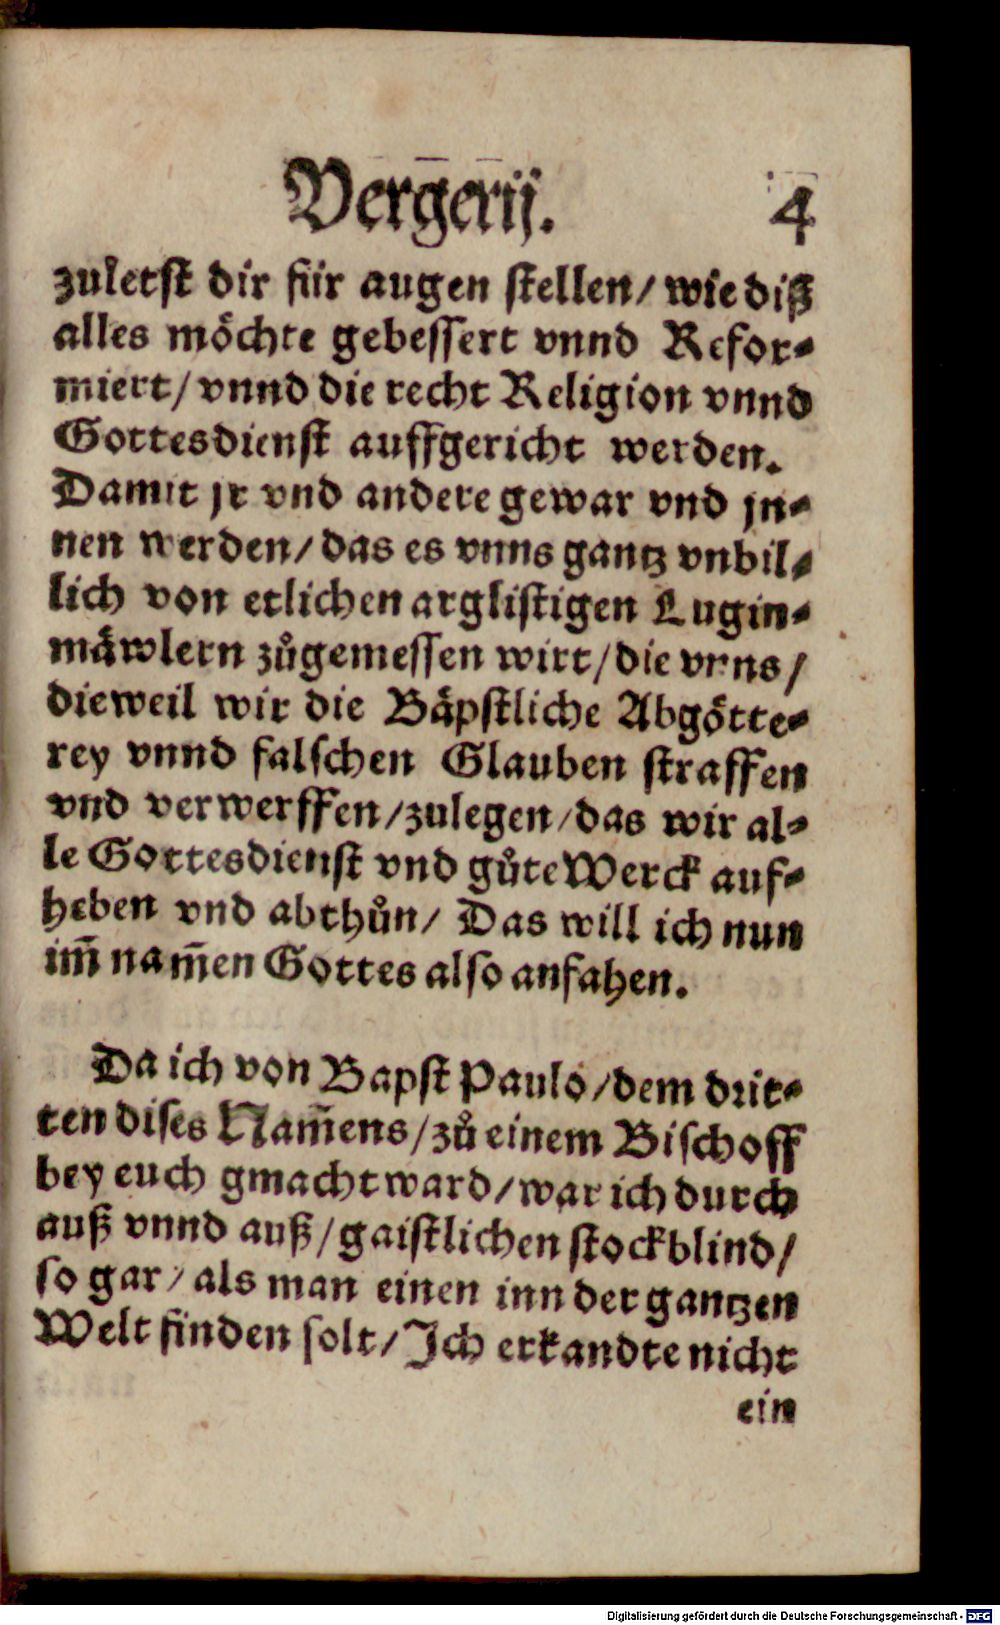 Vergerij. 4
zuletst dir für augen stellen/ wie diß
alles möchte gebessert vnnd Refor⸗
miert/ vnnd die recht Religion vnnd
Gottesdienst auffgericht werden.
Damit jr vnd andere gewar vnd jn⸗
nen werden/ das es vnns gantz vnbil⸗
lich von etlichen arglistigen Lugin⸗
mäwlern zůgemessen wirt/ die vnns/
dieweil wir die Bäpstliche Abgötte⸗
rey vnnd falschen Glauben straffen
vnd verwerffen/ zulegen/ das wir al⸗
le Gottesdienst vnd gůte Werck auf⸗
heben vnd abthůn/ Das will ich nun
im̃ nam̃en Gottes also anfahen.
Da ich von Bapst Paulo/ dem drit⸗
ten dises Nam̃ens/ zů einem Bischoff
bey euch gmacht ward/ war ich durch
auß vnnd auß/ gaistlichen stockblind/
so gar/ als man einen inn der gantzen
Welt finden solt/ Ich erkandte nicht
ein
Digitalisierung gefördert durch die Deutsche Forschungsgemeinschaft - DFG